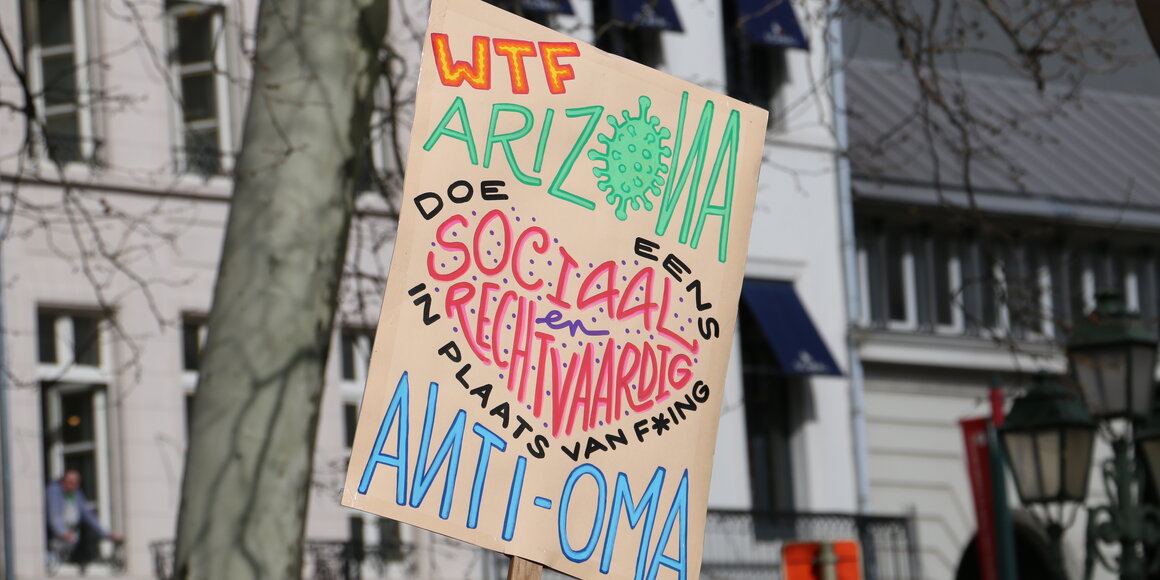 WTF
ARIZONA
DOE
EENS
SOCIAAL
en
RECHTVAARDIG
IN PLAATS VAN F*ING
ANTI-OMA